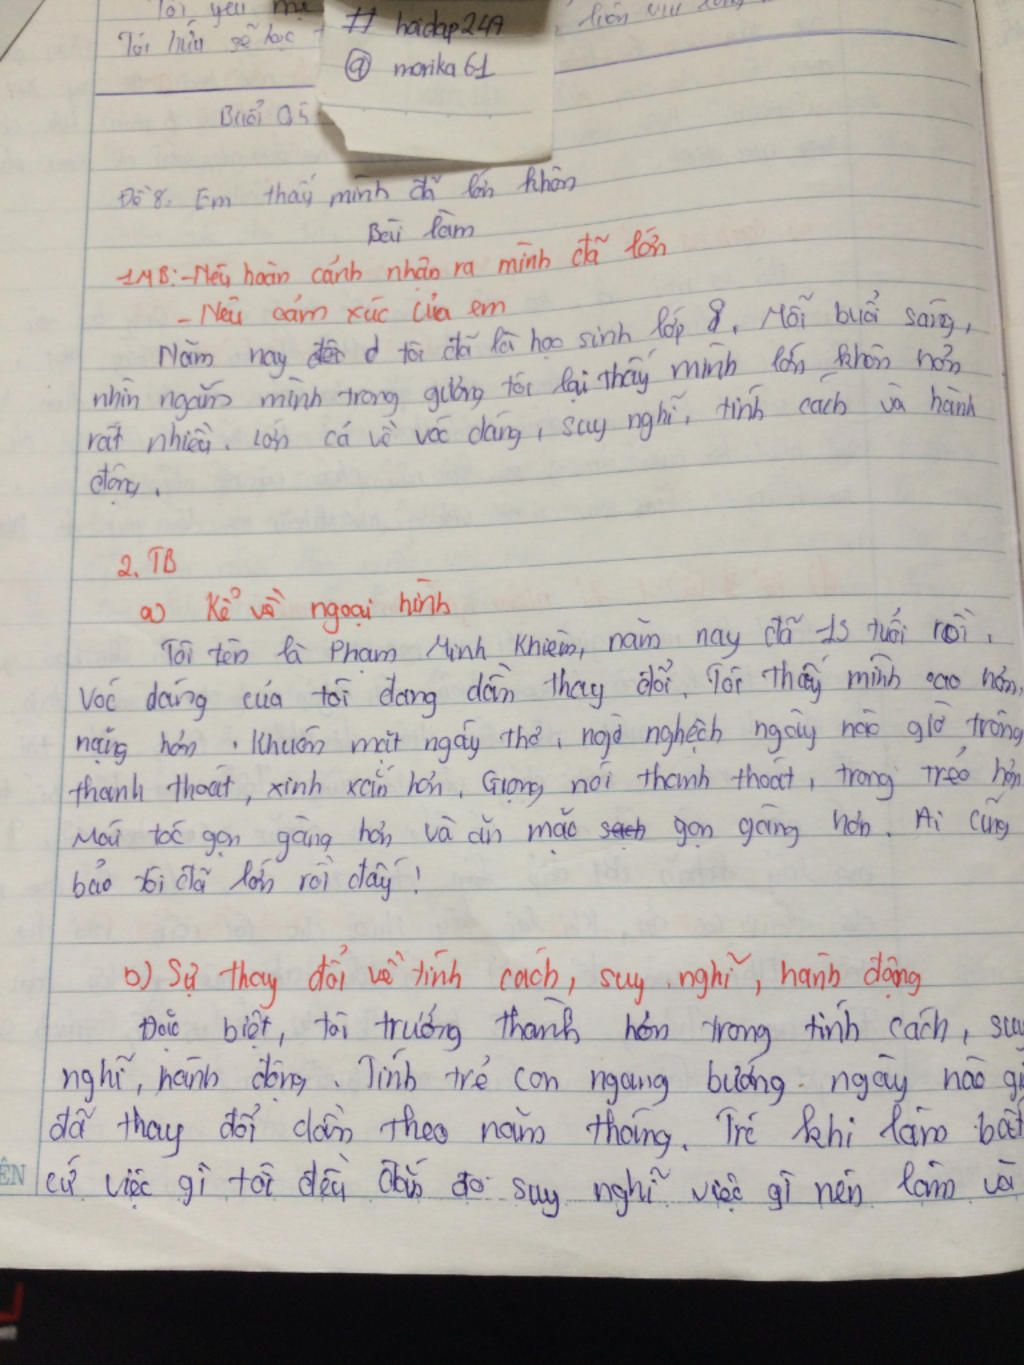 Tôi yêu mẹ
Tôi hứa sẽ học
# hoidap247
@ monika61
Buổi 05
Đề 8. Em thấy mình đã lớn khôn
Bài làm
1MB: - Nêu hoàn cảnh nhận ra mình đã lớn
- Nêu cảm xúc của em
Năm nay tôi đã là học sinh lớp 8. Mỗi buổi sáng,
nhìn ngắm mình trong gương tôi lại thấy mình lớn khôn hơn
rất nhiều. Lớn cả về vóc dáng, suy nghĩ, tính cách và hành
động.
2. TB
a) Kể về ngoại hình
Tôi tên là Phạm Minh Khiêm, năm nay đã 13 tuổi rồi.
Vóc dáng của tôi đang dần thay đổi. Tôi thấy mình cao hơn,
nặng hơn. Khuôn mặt ngây thơ, ngờ nghệch ngày nào giờ trông
thanh thoát, xinh xắn hơn. Giọng nói thanh thoát, trong trẻo hơn
Mái tóc gọn gàng hơn và ăn mặc sạch gọn gàng hơn. Ai cũng
bảo tôi đã lớn rồi đấy!
b) Sự thay đổi về tính cách, suy nghĩ, hành động
Đặc biệt, tôi trưởng thành hơn trong tính cách, suy
nghĩ, hành động. Tính trẻ con ngang bướng ngày nào gi
đã thay đổi dần theo năm tháng. Trc khi làm bất
cứ việc gì tôi đều đắn đo suy nghĩ việc gì nên làm và
ÊN